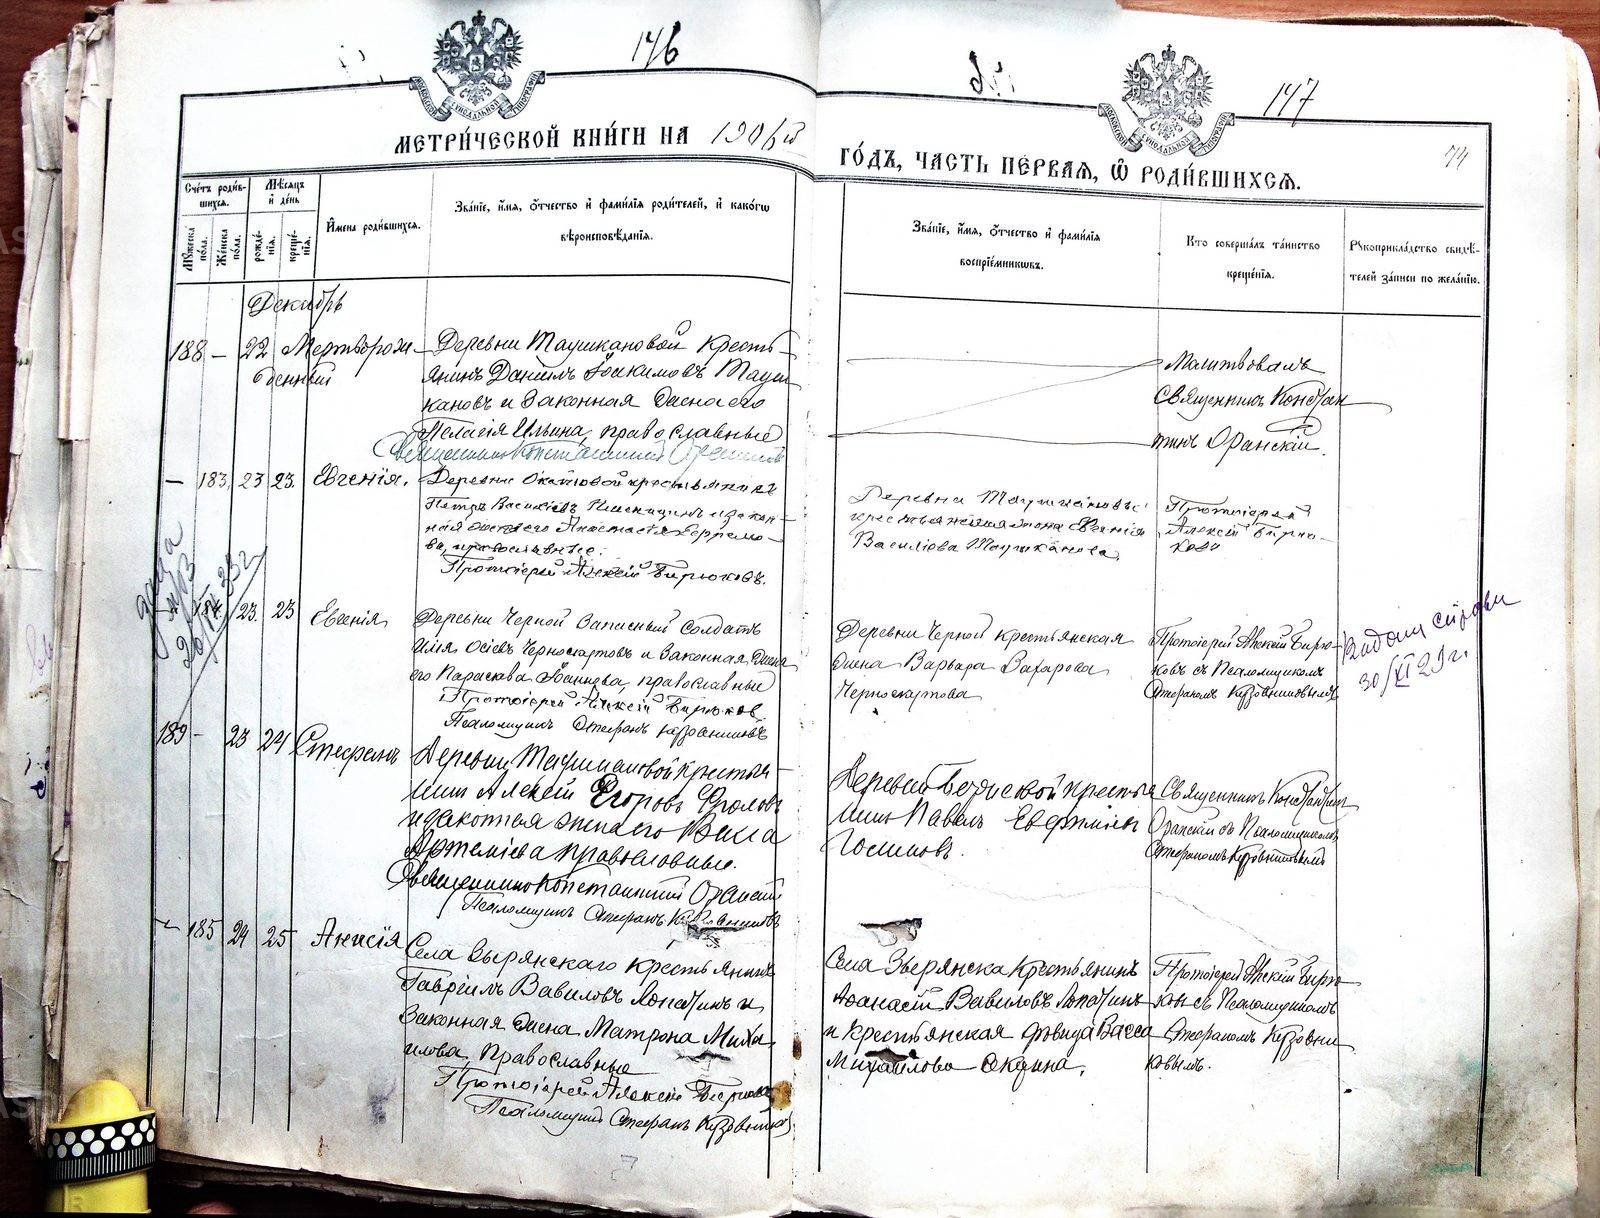 146
147
74
МЕТРИ́ЧЕСКОЙ КНИ́ГИ НА 1906й
ГО́ДЪ, ЧАСТЬ ПЕ́РВАЯ, Ѿ РОДИ́ВШИХСѦ.
Сче́тъ роди́в-
шихся.
Мѣ́сяцъ
и҆ де́нь
Мꙋ́жеска
по́ла.
Же́нска
по́ла.
рожде́-
нїя.
креще́-
нїя.
И҆мена роди́вшихся.
Зва́нїе, и҆́мя, ѻ҆́тчество и҆ фами́лїя роди́телей, и҆ како́гѡ
вѣроисповѣ́данїя.
Зва́нїе, и҆́мя, ѻ҆́тчество и҆ фами́лїя
воспрїе́мникѡвъ.
Кто соверша́лъ та́инство
креще́нїя.
Рꙋкоприкла́дство свидѣ́-
телей за́писи по жела́нїю.
Декабрь
188 – 22 Мертворож-
денный
Деревни Таушкановой Кресть-
янинъ Данiилъ Iоакимовъ Тауш
кановъ и Законная жена его
Пелагiя Ильина, православные
Священникъ Константинъ Оранскiй
Молитвовалъ
Священникъ Констан
тинъ Оранскiй.
– 183. 23 23. Евгенiя.
Деревни Окатовой крестьянинъ
Петръ Василiевъ и закон-
ная жена его Анастасiя
ва, православные.
Протоiерей Алексiй Бирюковъ.
Деревни Таушкановы
крестьянская жена Евгенiя
Василiева Таушканова
Протоiерей
Алексiй Бирю-
ковъ
184. 23. 23 Евгенiя
Деревни Черной Запасный Солдатъ
Илiя Осiевъ Черноскутовъ и Законная жена
его Параскева Iоаннова, православные
Протоiерей Алексiй Бирюковъ
Псаломщикъ Стефанъ Кузовниковъ
Деревни Черной Крестьянская
жена Варвара Захарова
Черноскутова
Протоiерей Алексiй Бирю-
ковъ съ Псаломщикомъ
Стефаномъ Кузовниковымъ
30/XI 29 г.
189 – 23 24 Стефанъ
Деревни Таушкановой крестья-
нинъ Алексiй Егоровъ Фроловъ
и законная жена его Васса
Артемiева православные.
Священникъ Константинъ Оранскiй
Псаломщикъ Стефанъ Кузовниковъ
нинъ Павелъ Евфимiевъ
Священникъ Константинъ
Оранскiй съ Псаломщикомъ
Стефаномъ Кузовниковымъ
185 24 25 Анисiя
Села Зырянскаго Крестьянинъ
Гаврiилъ Вавиловъ Лопатинъ и
Законная жена Матрона Миха
илова, Православные
Протоiерей Алексiй Бирюковъ
Псаломщикъ Стефанъ Кузовниковъ
Села Зырянска Крестьянинъ
Афанасiй Вавиловъ Лопатинъ
и Крестьянская девица Васса
Михайлова
Протоiерей Алексiй Бирю-
ковъ съ Псаломщикомъ
Стефаномъ Кузовни
ковымъ.